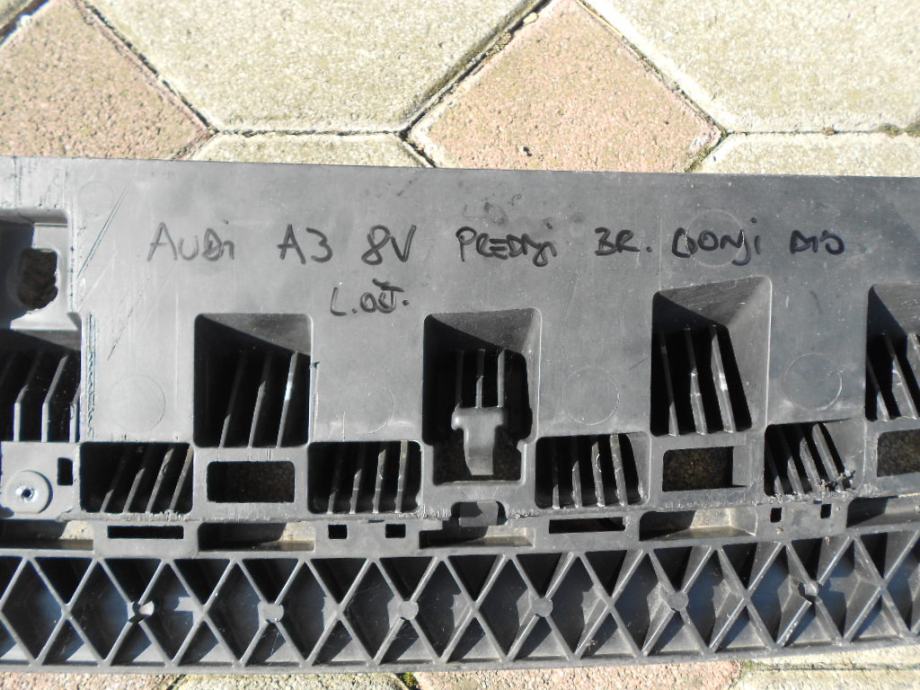 AUDi A3 8V PREDNji BR. DONji DiO
L.OŠT.